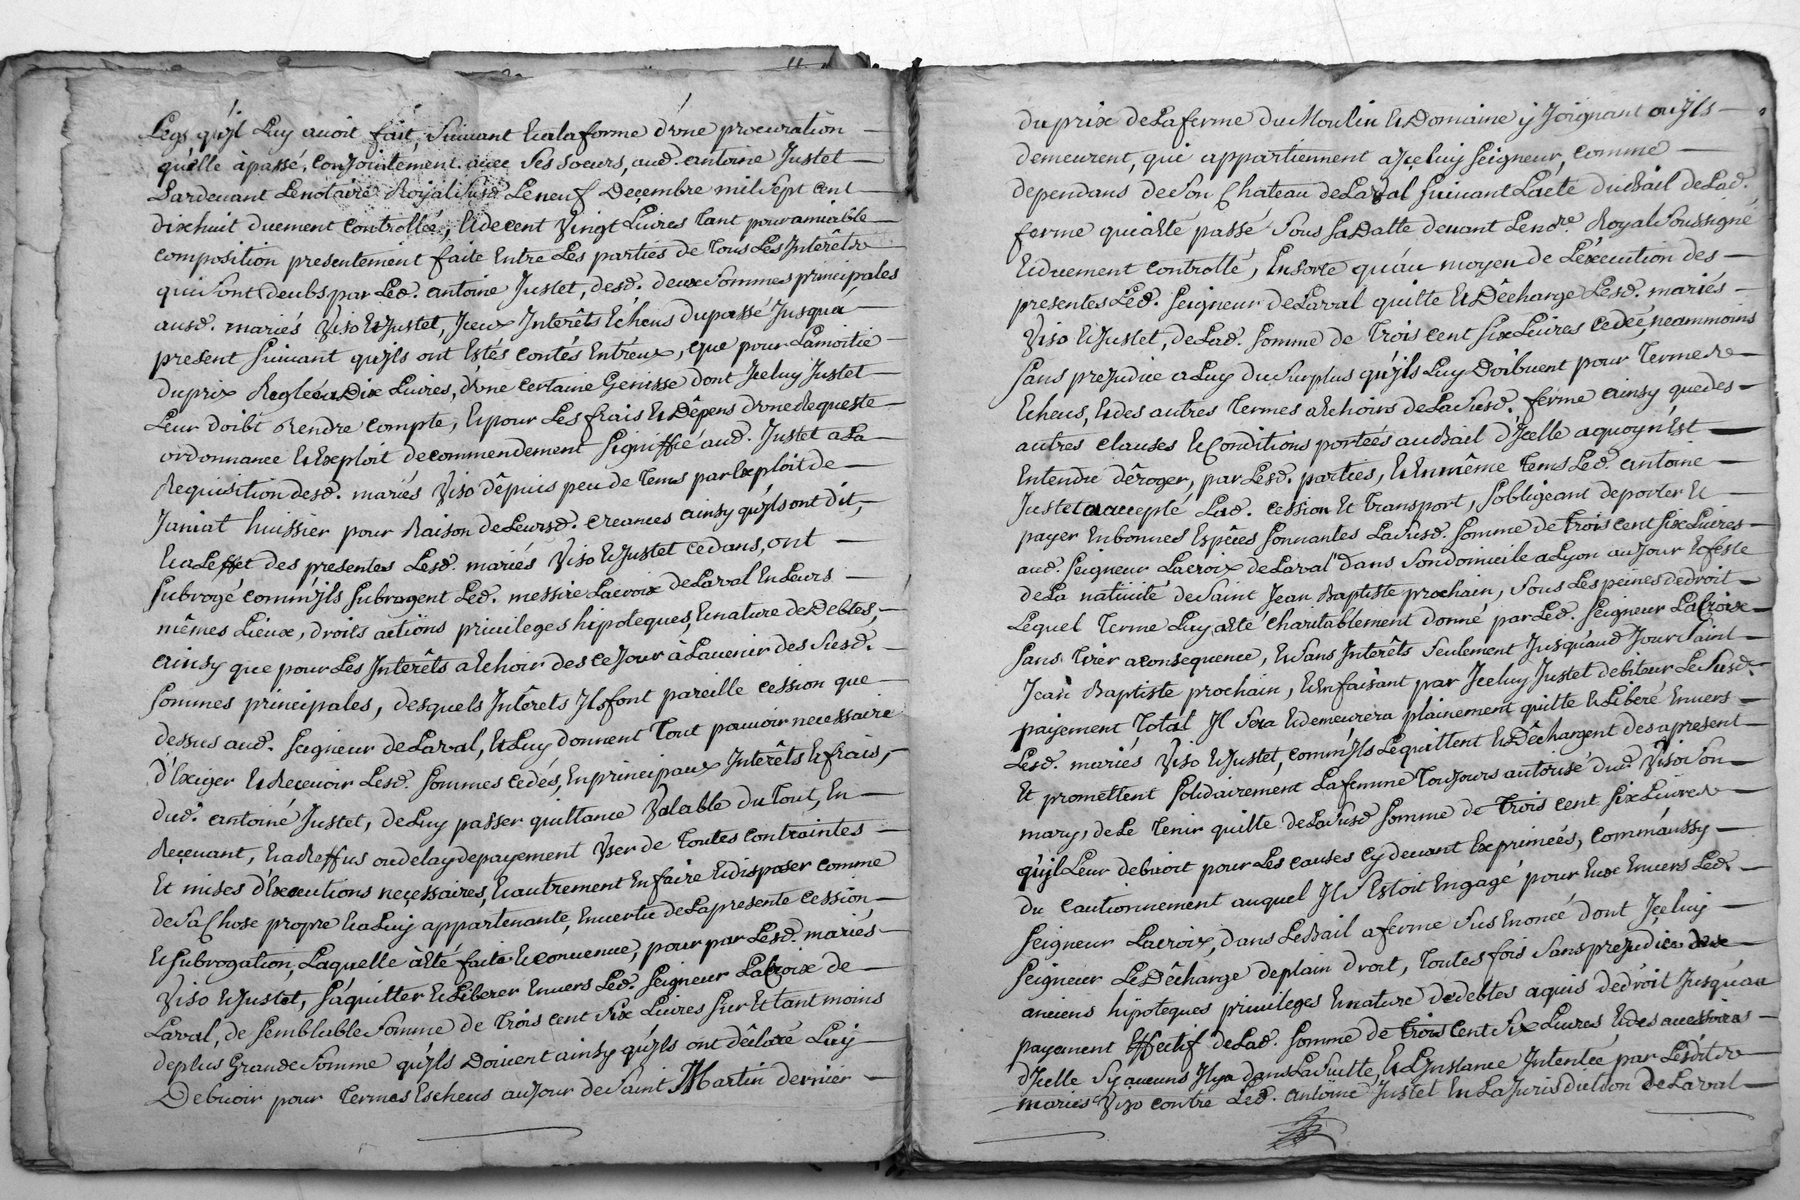 Legs qu'il Luy avoit fait, Suivant Et a la forme d'vne procuration
qu'elle à passé, Conjointement avec Ses soeurs, aud. antoine Justet
Pardevant Le notaire Royal Susd. Le neuf Decembre mil Sept cent
dixhuit duement Controllée, Et de cent Vingt Livres Tant pour amiable
composition presentement faite Entre Les parties de Tous Les Interêts
qui Sont deubs par Led. antoine Justet, desd. deux Sommes principales
ausd. mariés Viso Et Justet, Iceux Interêts Echeus du passé Jusqu'a
present Suivant qu'ils ont Estés contés Entr'eux, que pour La moitié
du prix Reglé à Dix Livres, d'vne certaine Genisse dont Iceluy Justet
Leur doibt Rendre Compte, Et pour Les frais Et Dêpens d'vne Requeste
ordonnance Et Exploit de commendement Signiffié aud. Justet a La
Requisition desd. mariés Viso dêpuis peu de Tems par Exploit de
Janiat huissier pour Raison de Leursd. Creances ainsy qu'ils ont dit,
Et a L'effet des presentes Lesd. mariés Viso Et Justet cedans, ont
Subrogé comm'ils Subrogent Led. messire Lacroix de Laval En Leurs
mêmes Lieux, droits actions privileges hipoteques, Et nature de Debtes,
ainsy que pour Les Interêts a Echoir des ce Jour à L'avenir des Susd.
Sommes principales, desquels Interêts Ils font pareille cession que
dessus aud. Seigneur de Laval, Et Luy donnent Tout pouvoir necessaire
d'Exiger Et Recevoir Lesd. Sommes cedés, En principaux Interêts Et frais,
dud. antoine Justet, de Luy passer quittance Valable du Tout, En
Reçevant, Et a Reffus ou delay de payement Vser de Toutes contraintes
Et mises d'Executions neçessaires, Et autrement En faire Et disposer comme
de Sa Chose propre Et a Luy appartenante, En vertu de La presente Cession
Et Subrogation, Laquelle à Eté faite Et convenue, pour par Lesd. mariés
Viso Et Justet, S'aquitter Et Liberer Envers Led. Seigneur La Croix de
Laval, de Semblable Somme de Trois cent Six Livres Sur Et tant moins
de plus Grande Somme qu'ils Doivent ainsy qu'ils ont dêclaré Luy
Debvoir pour Termes Escheus au Jour de Saint Martin dernier
du prix de La ferme du Moulin Et Domaine y Joignant ou ils
demeurent, qui appartiennent a Içeluy Seigneur, comme
dependans de Son Chateau de Laval Suivant L'acte du Bail de Lad.
ferme qui a Eté passé Sous Sa Datte devant Le nore. Royal Soussigné
Et duement Controllé, En Sorte qu'au moyen de L'éxecution des
presentes Led. Seigneur de Laval quitte Et Dêcharge Lesd. mariés
Viso Et Justet, de Lad. Somme de Trois cent Six Livres cedée, neammoins
Sans prejudice a Luy du Surplus qu'ils Luy Doibvent pour Termes
Echeus, Et des autres Termes a Echoirs de La Susd. ferme ainsy que des
autres clauses Et Conditions portées au Bail d'Icelle a quoy n'Est
Entendu dêroger, par Lesd. parties, Et En même Tems Led. antoine
Justet a accepté Lad. cession Et Transport, S'obligeant de porter Et
payer En bonnes Espêces Sonnantes La Susd. Somme de Trois cent Six Livres
aud. Seigneur Lacroix de Laval dans Son domicile a Lyon au Jour Et feste
de La nativité de Saint Jean Baptiste prochain, Sous Les peines de droit
Lequel Terme Luy a Eté charitablement donné par Led. Seigneur La Croix
Sans Tirer a consequence, Et Sans Interêts Seulement Jusqu'aud Jour Saint
Jean Baptiste prochain, Et En faisant par Iceluy Justet debiteur Le Susd.
payement Total Il Sera Et demeurera plainement quitte Et Liberé Envers
Lesd. mariés Viso Et Justet, comm'ils Le quittent Et Dêchargent des apresent
Et promettent Solidairement La femme Toujours autorisé dud. Viso Son
mary, de Le Tenir quitte de La Susd Somme de Trois cent Six Livres
qu'il Leur debvoit pour Les causes Cy devant Exprimées, comm'aussy
du cautionnement auquel Il S'Estoit Engagé pour Eux Envers Led.
Seigneur Lacroix, dans Le Bail a ferme Sus Enoncé dont Içeluy
Seigneur Le Dêcharge de plain droit, Toutes fois Sans prejudice des
anciens hipoteques privileges Et nature de debtes aquis de droit Jusqu'au
payement Effectif de Lad. Somme de Trois Cent Six Livres Et des accessoires
d'Icelle Sy aucuns Il y a dans La Suitte, Et L'Instance Intentée par Lesdits
mariés Viso contre Led. antoine Justet En La Jurisdiction de Laval